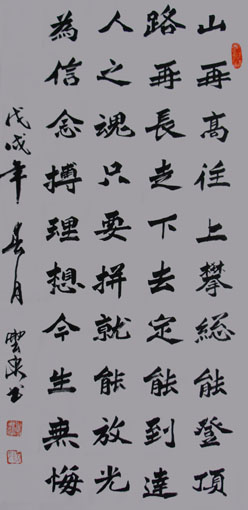 山再高往上攀総能登頂
路再長走下去定能到達
人之魂只要拼就能放光
為信念搏理想今生無悔
戊戌年春月雲東书